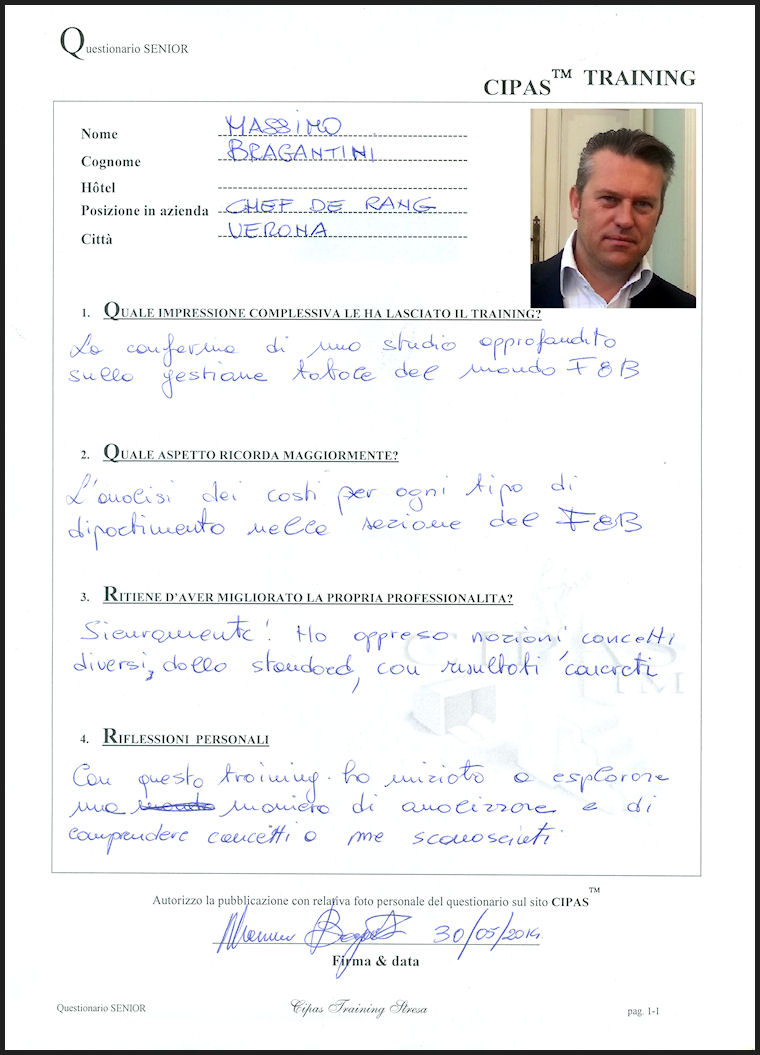 Questionario SENIOR
CIPAS™ TRAINING
Nome MASSIMO
Cognome BRAGANTINI
Hôtel
Posizione in azienda CHEF DE RANG
Città VERONA
1. QUALE IMPRESSIONE COMPLESSIVA LE HA LASCIATO IL TRAINING?
La conferma di uno studio approfondito
sulla gestione totale del mondo F&B
2. QUALE ASPETTO RICORDA MAGGIORMENTE?
L'analisi dei costi per ogni tipo di
dipartimento nella sezione del F&B
3. RITIENE D'AVER MIGLIORATO LA PROPRIA PROFESSIONALITA?
Sicuramente! Ho appreso nozioni, concetti
diversi, dallo standard, con risultati concreti
CIPAS
TM
4. RIFLESSIONI PERSONALI
Con questo training ho iniziato a esplorare
una maniera di analizzare e di
comprendere concetti a me sconosciuti
Autorizzo la pubblicazione con relativa foto personale del questionario sul sito CIPAS™
30/05/2014
Firma & data
Questionario SENIOR
Cipas Training Stresa
pag. 1-1